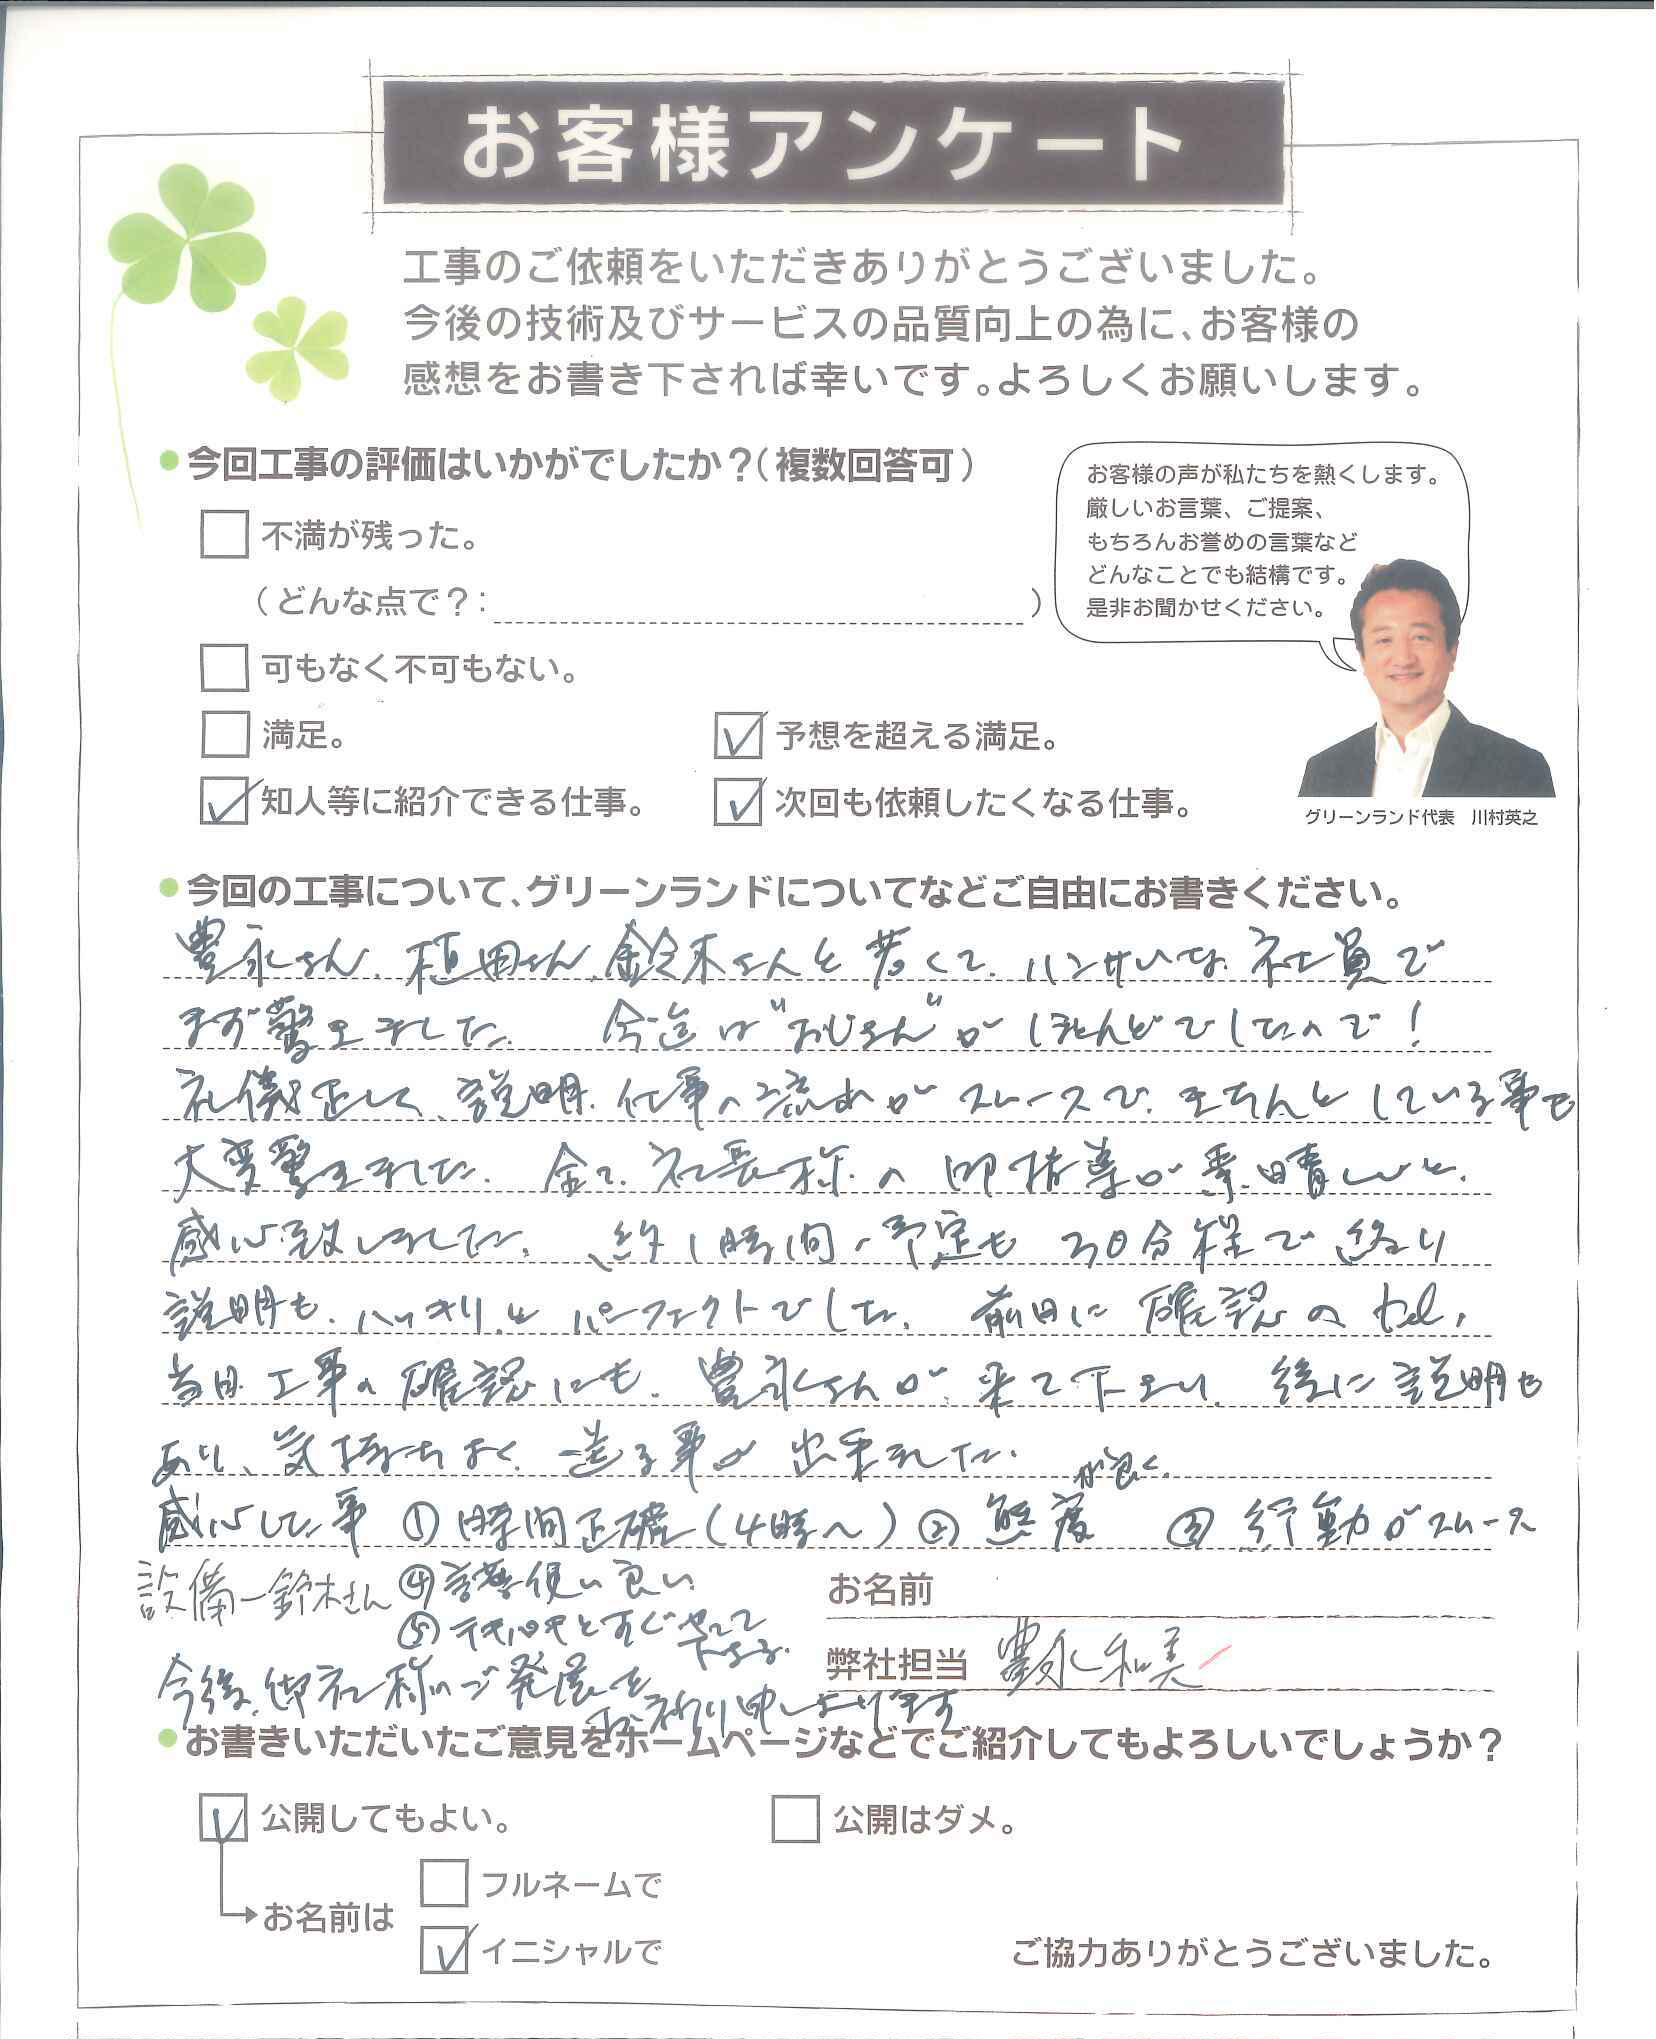 お客様アンケート
工事のご依頼をいただきありがとうございました。
今後の技術及びサービスの品質向上の為に、お客様の
感想をお書き下されば幸いです。よろしくお願いします。
今回工事の評価はいかがでしたか?(複数回答可)
不満が残った。
(どんな点で?: )
可もなく不可もない。
満足。
予想を超える満足。
知人等に紹介できる仕事。
次回も依頼したくなる仕事。
お客様の声が私たちを熱くします。
厳しいお言葉、ご提案、
もちろんお誉めの言葉など
どんなことでも結構です。
是非お聞かせください。
グリーンランド代表 川村英之
今回の工事について、グリーンランドについてなどご自由にお書きください。
豊永さん、植田さん、鈴木さんと若くて、ハンサムな社員で
まず驚きました。 今迄は"おじさん"がほとんどでしたので!
礼儀正しく、説明、仕事の流れがスムースで、きちんとしている事も
大変驚きました。 全て、社長様の御指導が素晴しいと、
感心致しました。 約1時間の予定も30分程で終り
説明も、ハッキリとパーフェクトでした。 前日に確認のtel、
当日工事の確認にも、豊永さんが来て下さり、後に説明も
あり、気持ちよく 事が出来ました。
感心した事 ①時間正確(4時〜) ②態度が良く、 ③行動がスムース
設備ー鈴木さん ④言葉使い良い
⑤テキパキとすぐやって下さる。
今後、御社様のご発展をお祈り申し上げます
お名前
弊社担当 豊永和美
お書きいただいたご意見をホームページなどでご紹介してもよろしいでしょうか?
公開してもよい。
公開はダメ。
お名前は
フルネームで
イニシャルで
ご協力ありがとうございました。